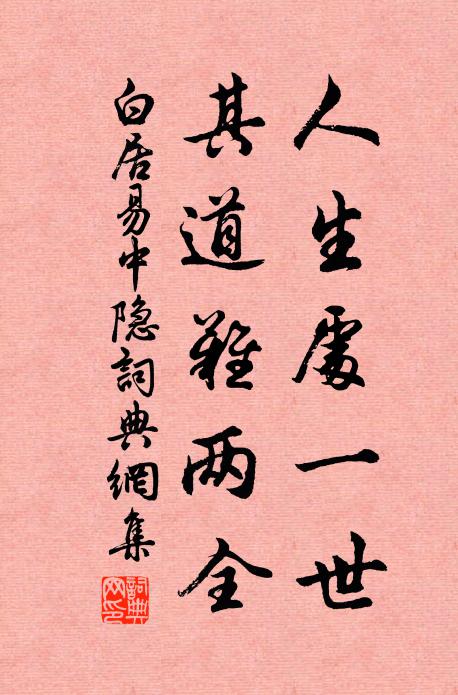 人生處一世
其道難两全
白居易中隐詞典網集
詞典網印